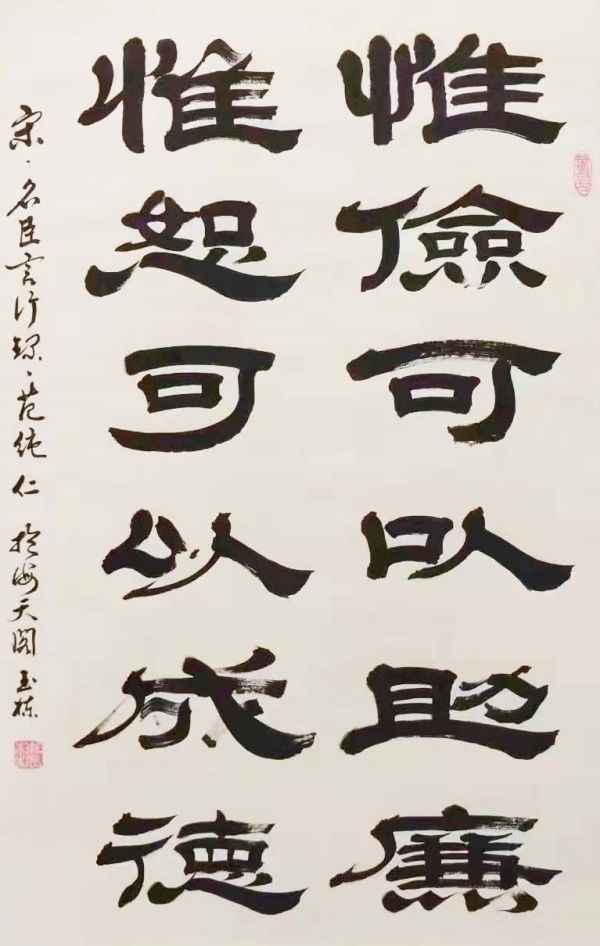 惟儉可以助廉
惟恕可以成德
宋·名臣言行録·范純仁 於海天閣 玉栋